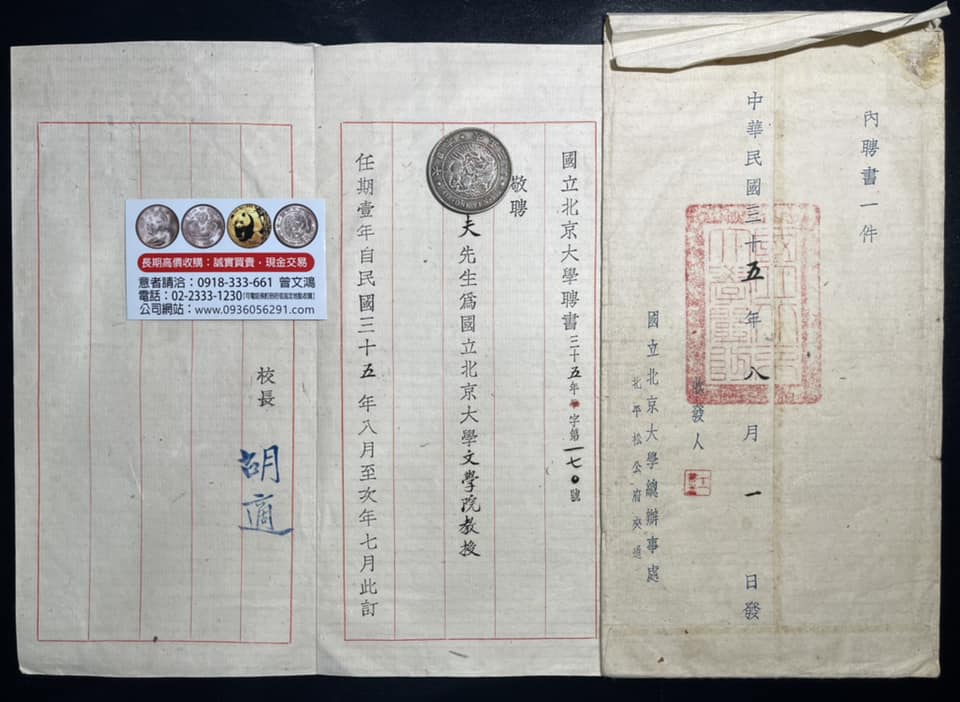 內聘書一件
中華民國三十五年八月一日發
收發人
國立北京大學總辦事處
北平松公府夾道
國立北京大學聘書三十五年字第一七〇號
敬聘
夫先生爲國立北京大學文學院教授
任期壹年自民國三十五年八月至次年七月此訂
校長
胡適
ONE YEN
長期高價收購：誠實買賣・現金交易
意者請洽：0918-333-661 曾文鴻
電話：02-2333-1230
公司網站：www.0936056291.com